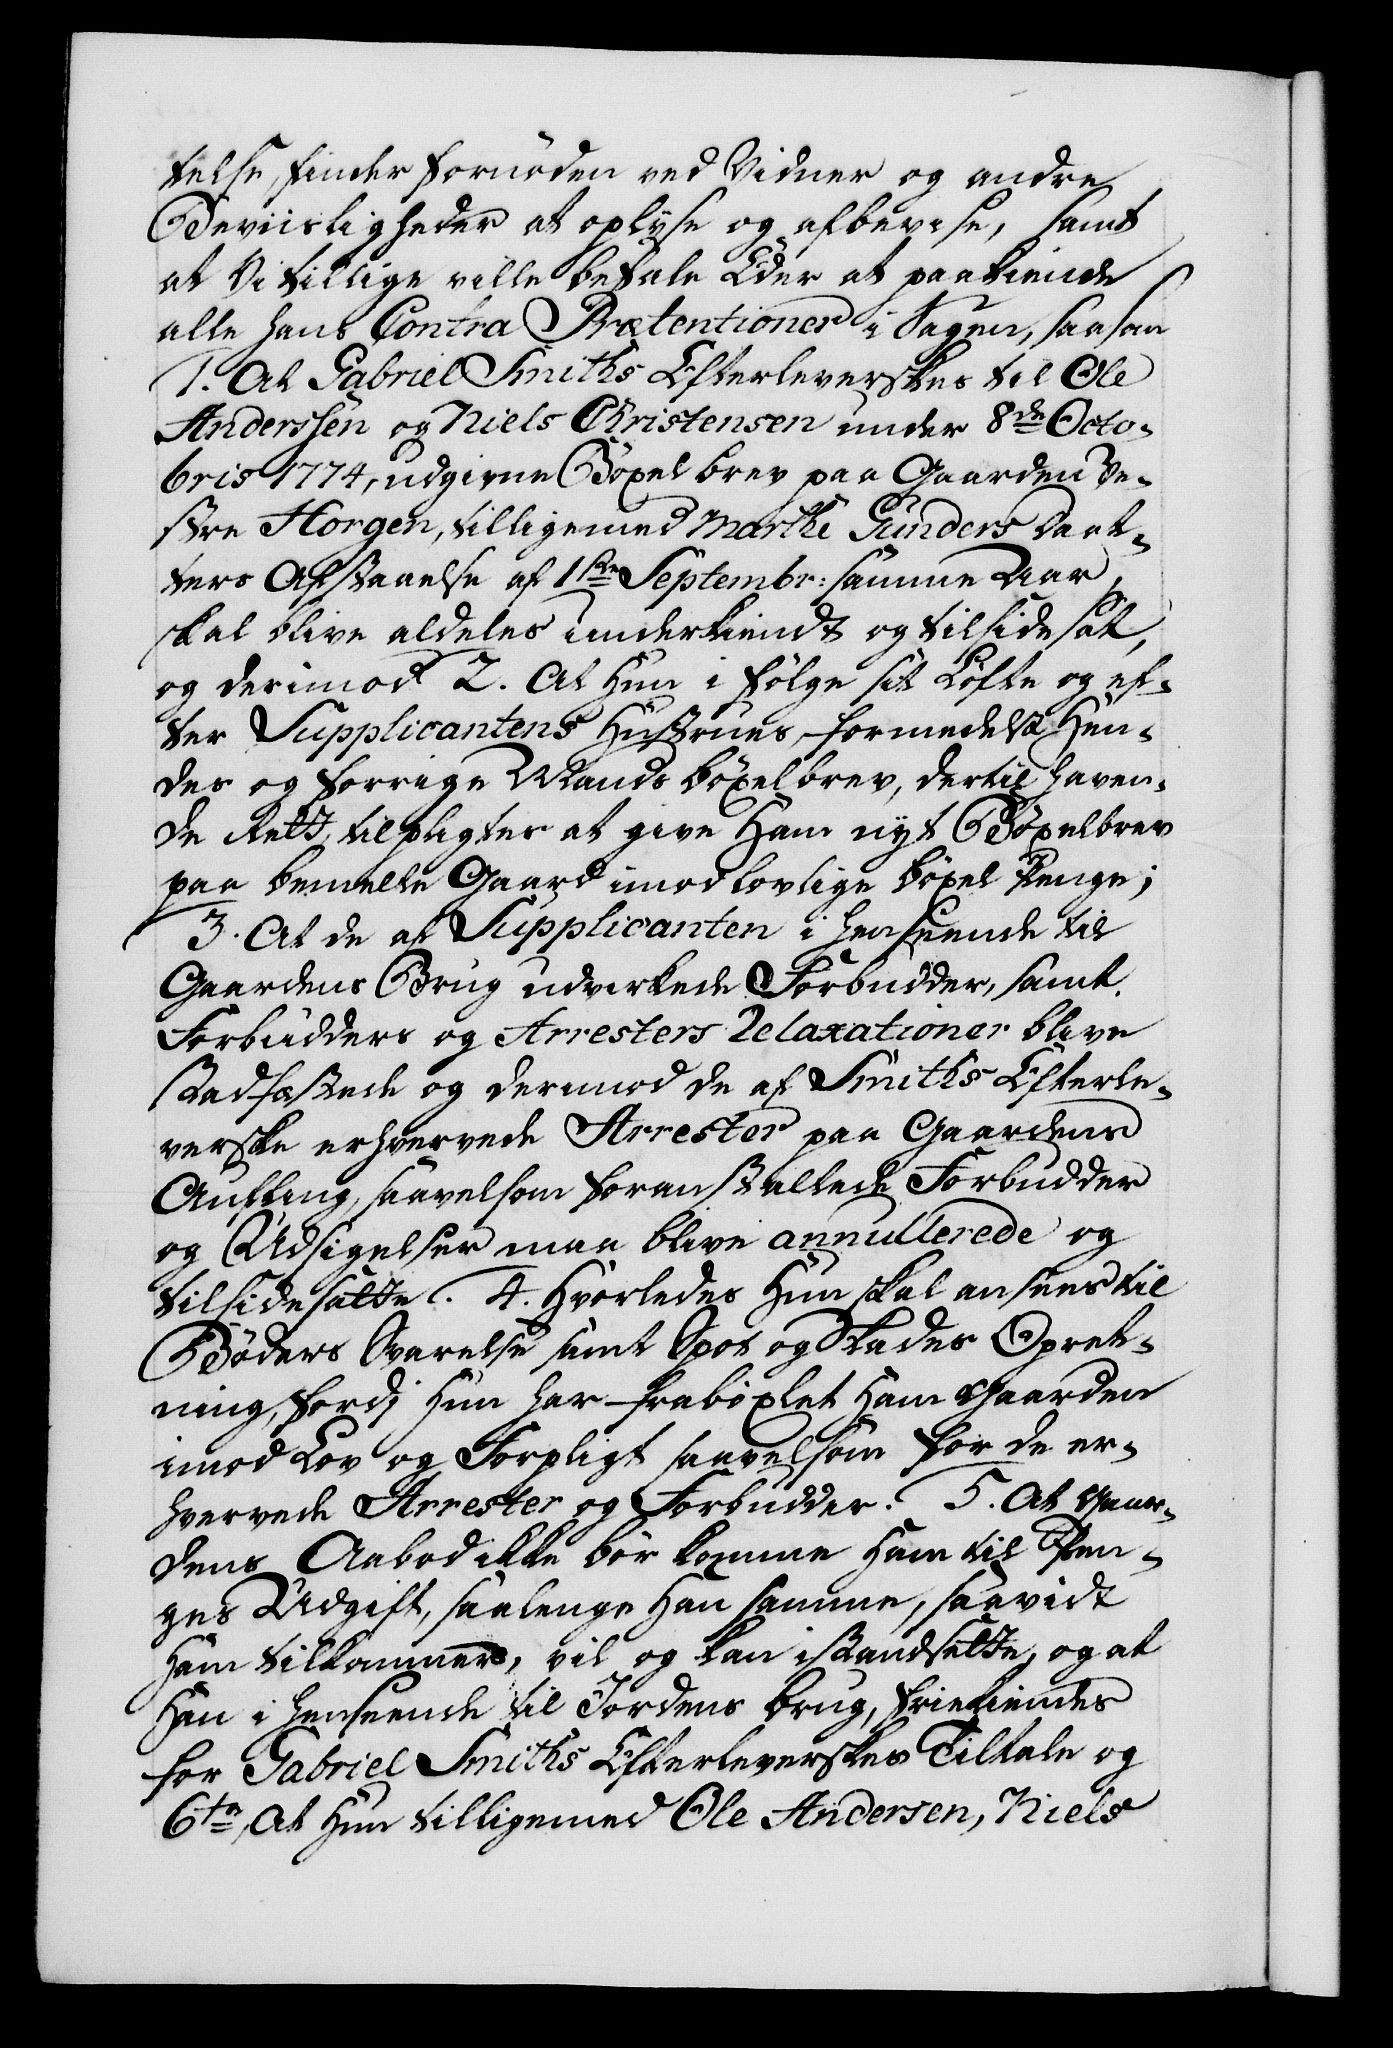 telse, finder fornöden ved Vidner og andre
Beviisligheder at oplyse og afbevise, samt
at Vi tillige ville befale Eder at paakiende
alle hans Contra Prætentioner i Sagen, saasom
1. At Gabriel Smiths Efterleverskes til Ole
Anderssen og Niels Christensen under 8de Octo-
bris 1774, udgivne Böxelbrev paa Gaarden Ve-
stre Horgen, tilligemed Marthe Gunders Daat-
ters Afstaaelse af 1ste Septembr: samme Aar,
skal blive aldeles underkiendt og tilsidesat,
og derimod 2. At Hun i fölge sit Löfte og ef-
ter Supplicantens Hustrues, formedelst Hen-
des og forrige Mands böxelbrev, dertil haven-
de Rett, tilpligtes at give Ham nyt Böxelbrev
paa bemelte Gaard imod lovlige böxel Penge;
3. At de af Supplicanten i henseende til
Gaardens Brug udvirkede Forbudder, samt
Forbudders og Arresters Relaxationer blive
stadfæstede og derimod de af Smiths Efterle-
verske erhvervede Arrester paa Gaardens
Aufling, saavelsom foranstaltede Forbudder
og Udsigelser maa blive annullerede og
tilsidesatte. 4. Hvorledes Hun skal ansees til
Böders Svarelse samt Spot og Skades Opret-
ning, fordj Hun har fraböxlet Ham Gaarden
imod Lov og Forpligt saavelsom for de er-
hvervede Arrester og Forbudder. 5. At Gaar-
dens Aabod ikke bör komme Ham til Pen-
ges Udgift, saalenge Han samme, saavidt
Ham tilkommer, vil og kan istandsette, og at
Han i henseende til Jordens brug, friekiendes
for Gabriel Smiths Efterleverskes Tiltale og
6te, At Hun tilligemed Ole Andersen, Niels